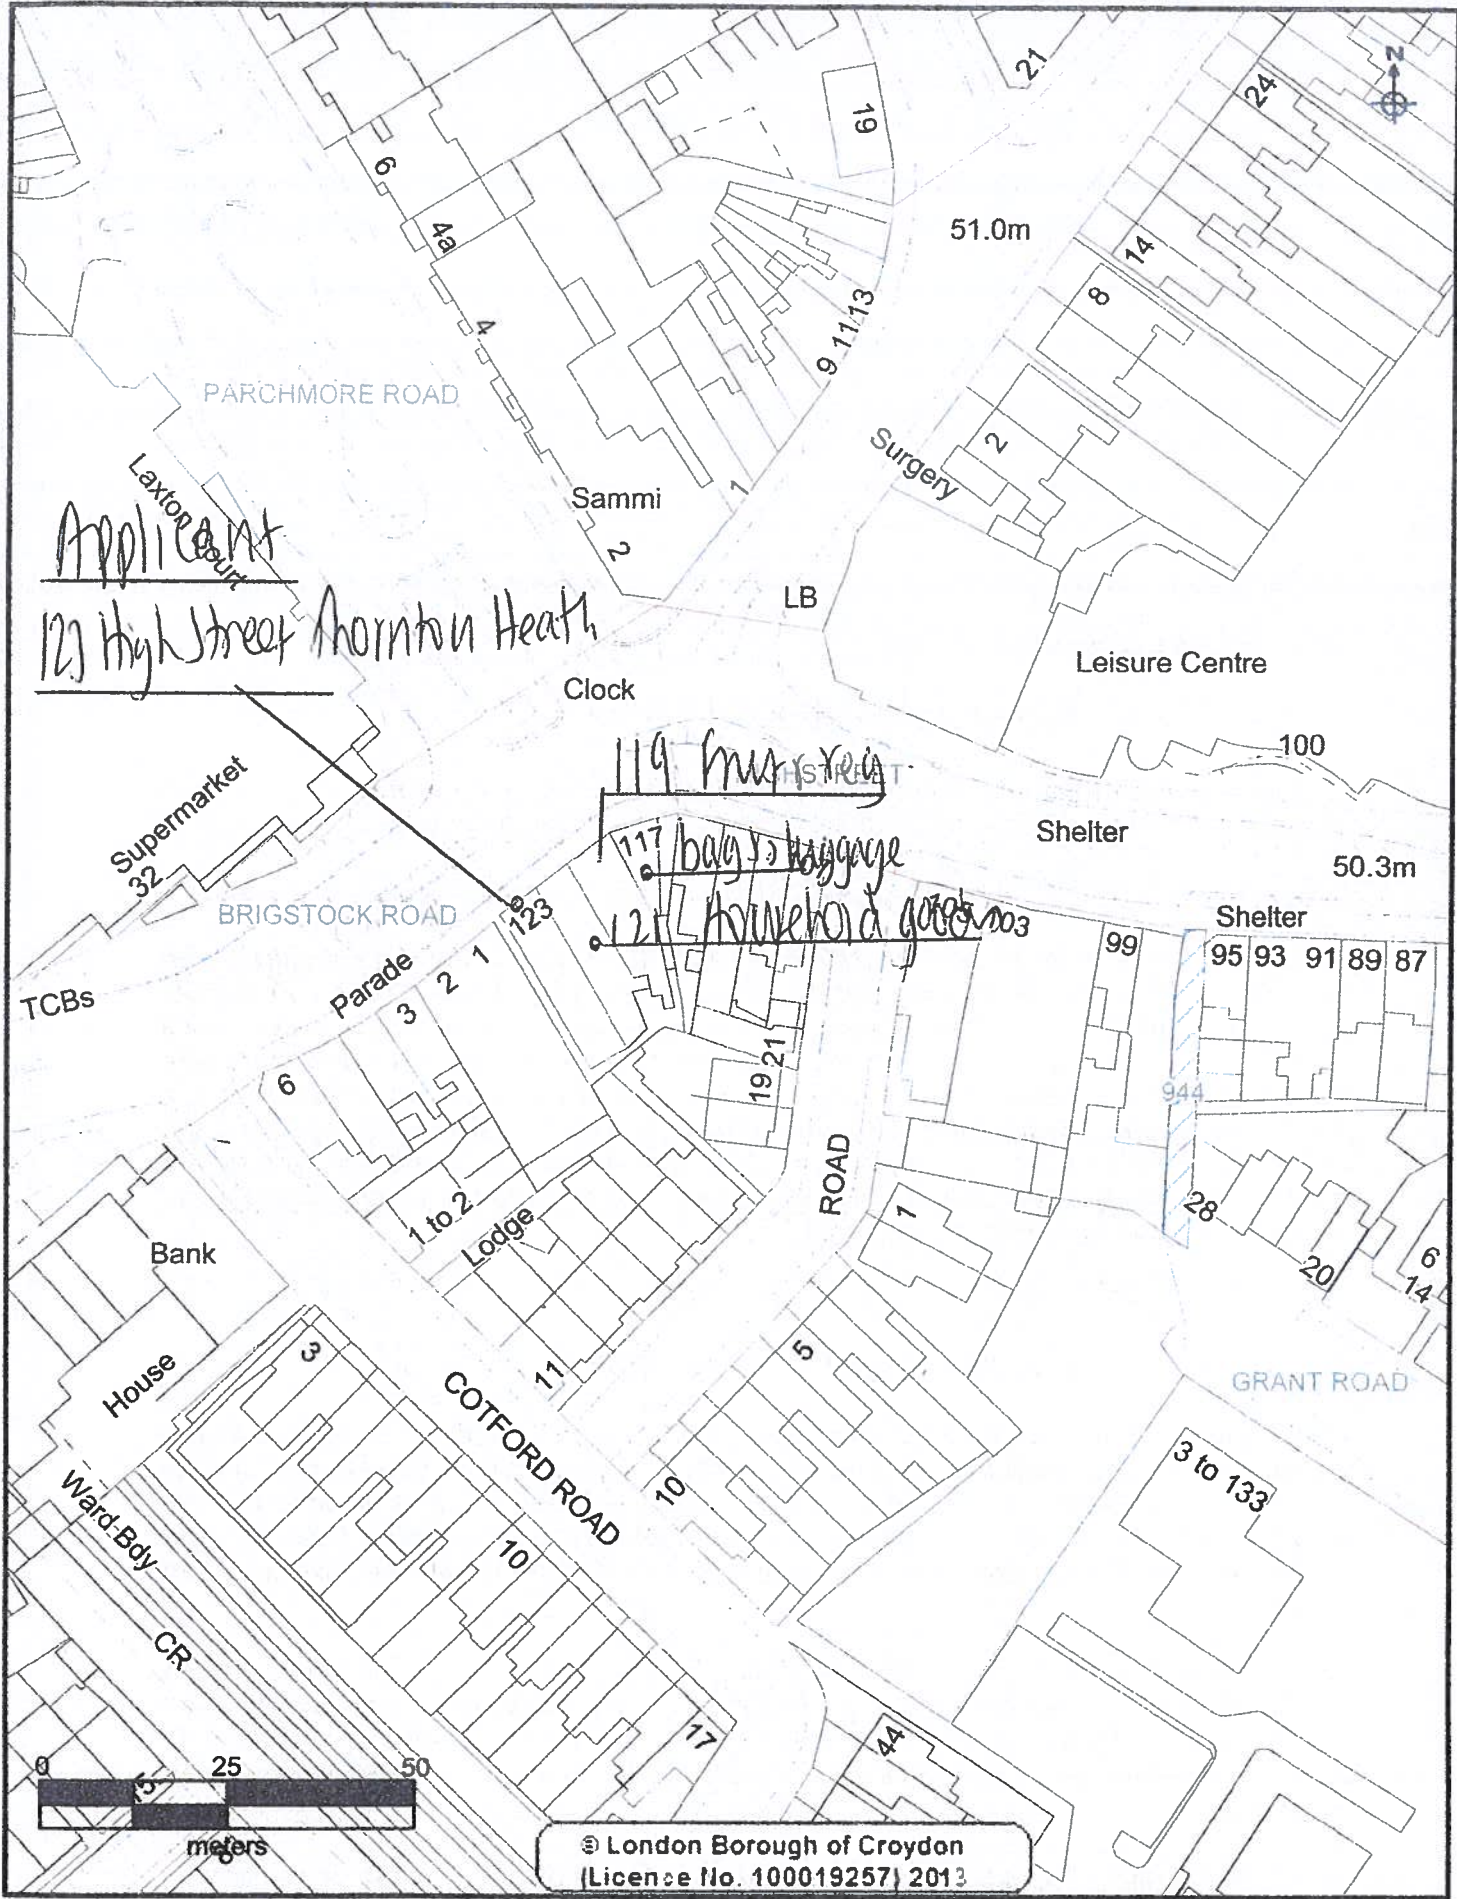 N
21
24
19
6
4a
51.0m
14
8
4
9 11 13
PARCHMORE ROAD
2
Surgery
Laxton Court
Sammi
1
2
Applicant
123 High Street Thornton Heath
LB
Leisure Centre
Clock
100
119
HIGH STREET
Supermarket
32
Shelter
117
bags luggage
50.3m
BRIGSTOCK ROAD
123
121 Household goods
Shelter
99
95 93 91 89 87
Parade
1
2
3
TCBs
6
19 21
944
ROAD
1
28
20
6
14
1 to 2
Lodge
Bank
House
3
11
5
COTFORD ROAD
GRANT ROAD
10
3 to 133
Ward Bdy
10
CR
17
44
0 25 50
meters
© London Borough of Croydon
(Licence No. 100019257) 2013